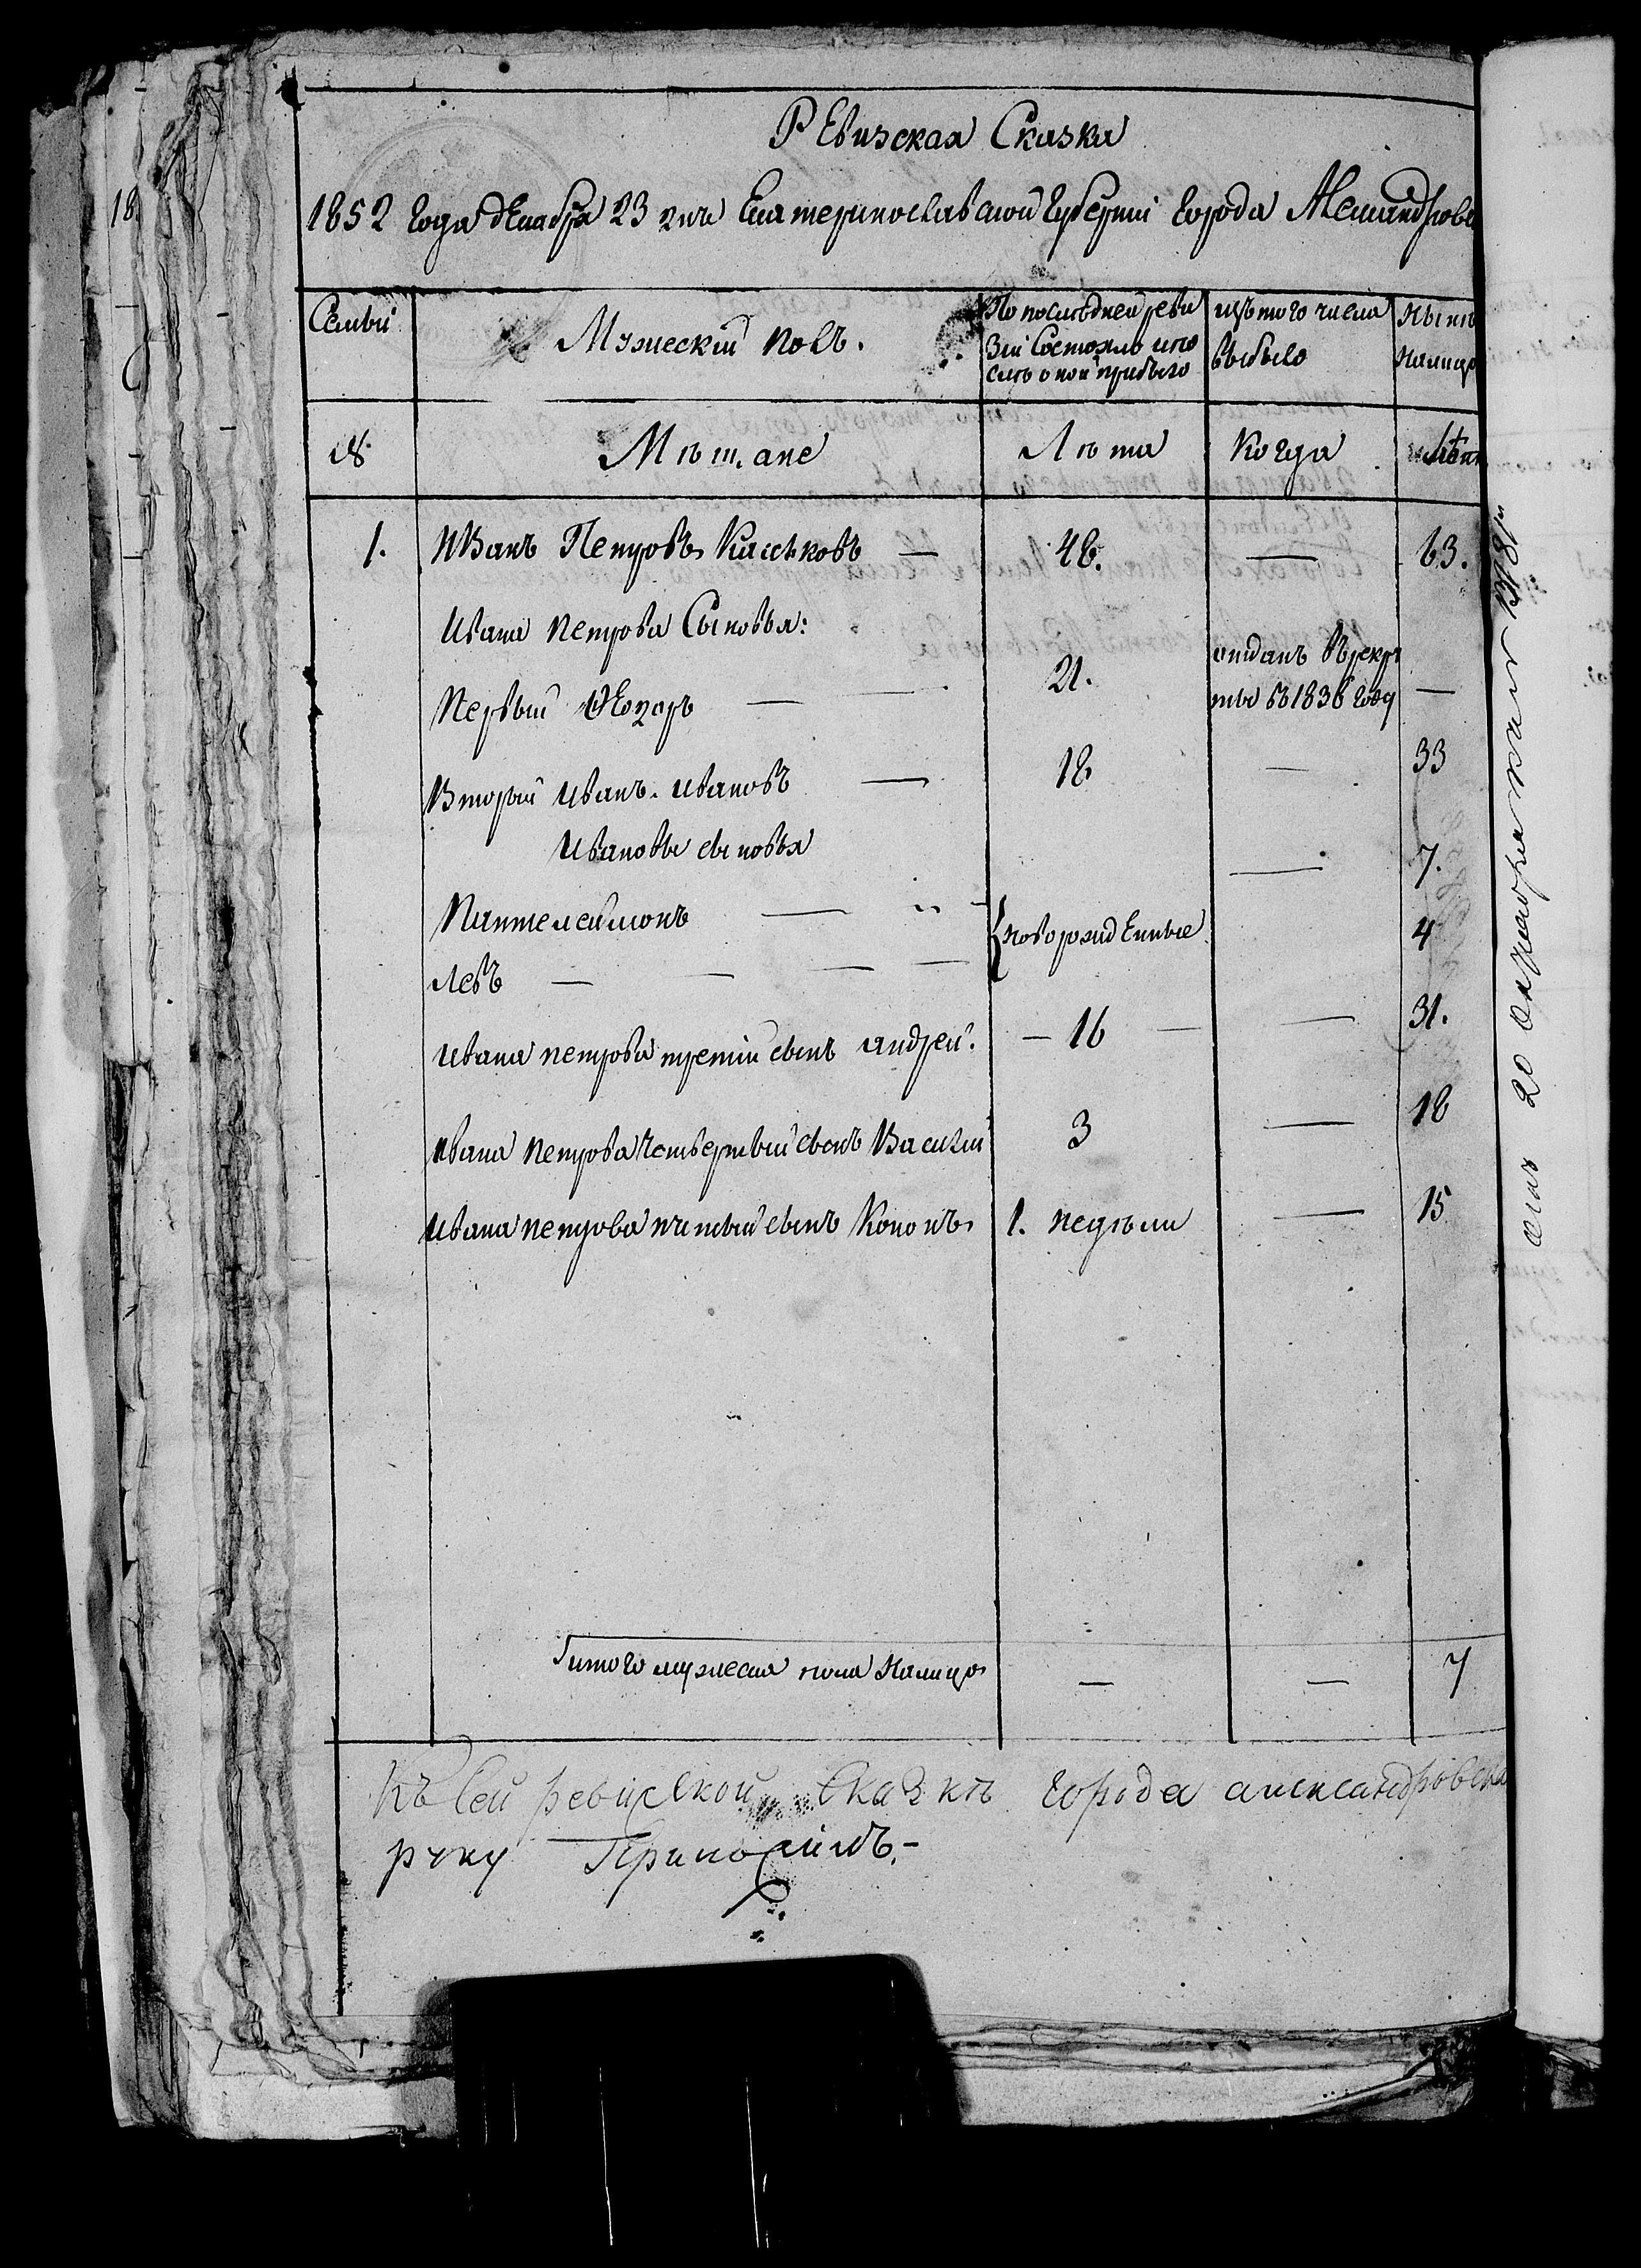 Ревизская Сказка
1852 года декабря 23 дня Екатеринославской Губерніи города Александровс
Семьи
Мужескій полъ.
По последней реви
зіи Состояло и по
слѣ оной прибыло
изъ того числа
выбыло
Нынѣ
налицо
№
Мѣщане
Лѣта
Когда
Лѣта
1. Иванъ Петровъ — 48. — 63.
Ивана Петрова Сыновья:
Первый — 21. отданъ в рекру
ты в 1836 году —
Второй Иванъ. Ивановъ — 18 — 33
Ивановы сыновья
Пантелеймонъ — новорожденные — 7.
Левъ — 4
Ивана Петрова третій сынъ Андрей. — 16 — — 31.
Ивана Петрова четвертый сынъ Василій 3 — 18
Ивана Петрова пятый сынъ Кононъ 1. недѣли — 15
итого мужеска пола налицо — — 7
Къ сей ревизской Сказкѣ города александровска
руку Приложилъ.
20
18